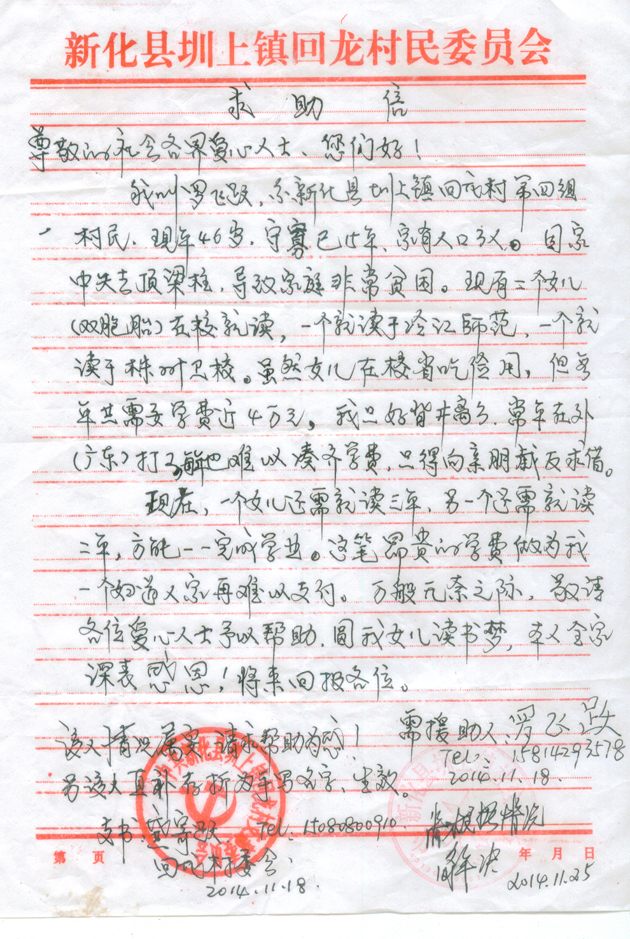 新化县圳上镇回龙村民委员会
求助信
尊敬的社会各界爱心人士、您们好！
我叫罗飞跃，系新化县圳上镇回龙村第四组
村民，现年46岁，守寡已15年、家有人口3人。因家
中失去顶梁柱，导致家庭非常贫困。现有二个女儿
（双胞胎）在校就读，一个就读于冷江师范，一个就
读于株州卫校。虽然女儿在校省吃俭用，但每
年共需要学费近4万元，我只好背井离乡，常年在外
（广东）打工，都难以凑齐学费，只得向亲朋戚友求借。
现在，一个女儿还需就读三年，另一个还需就读
二年，方能一一完成学业。这笔昂贵的学费做为我
一个妇道人家再难以支付。万般无奈之际，敬请
各位爱心人士予以帮助，圆我女儿读书梦，本人全家
深表感恩！将来回报各位。
需援助人：罗飞跃
Tel：15814293578
2014.11.18.
该人情况属实，请求帮助为感！
另该人直补存折为手写名字，生效。
支书：Tel：15080800910
回龙村委会
2014.11.18.
情况
解决
2014.11.25
第 页
年 月 日